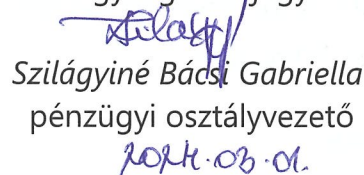 Szilágyiné Bácsi Gabriella
pénzügyi osztályvezető
2024.03.01.